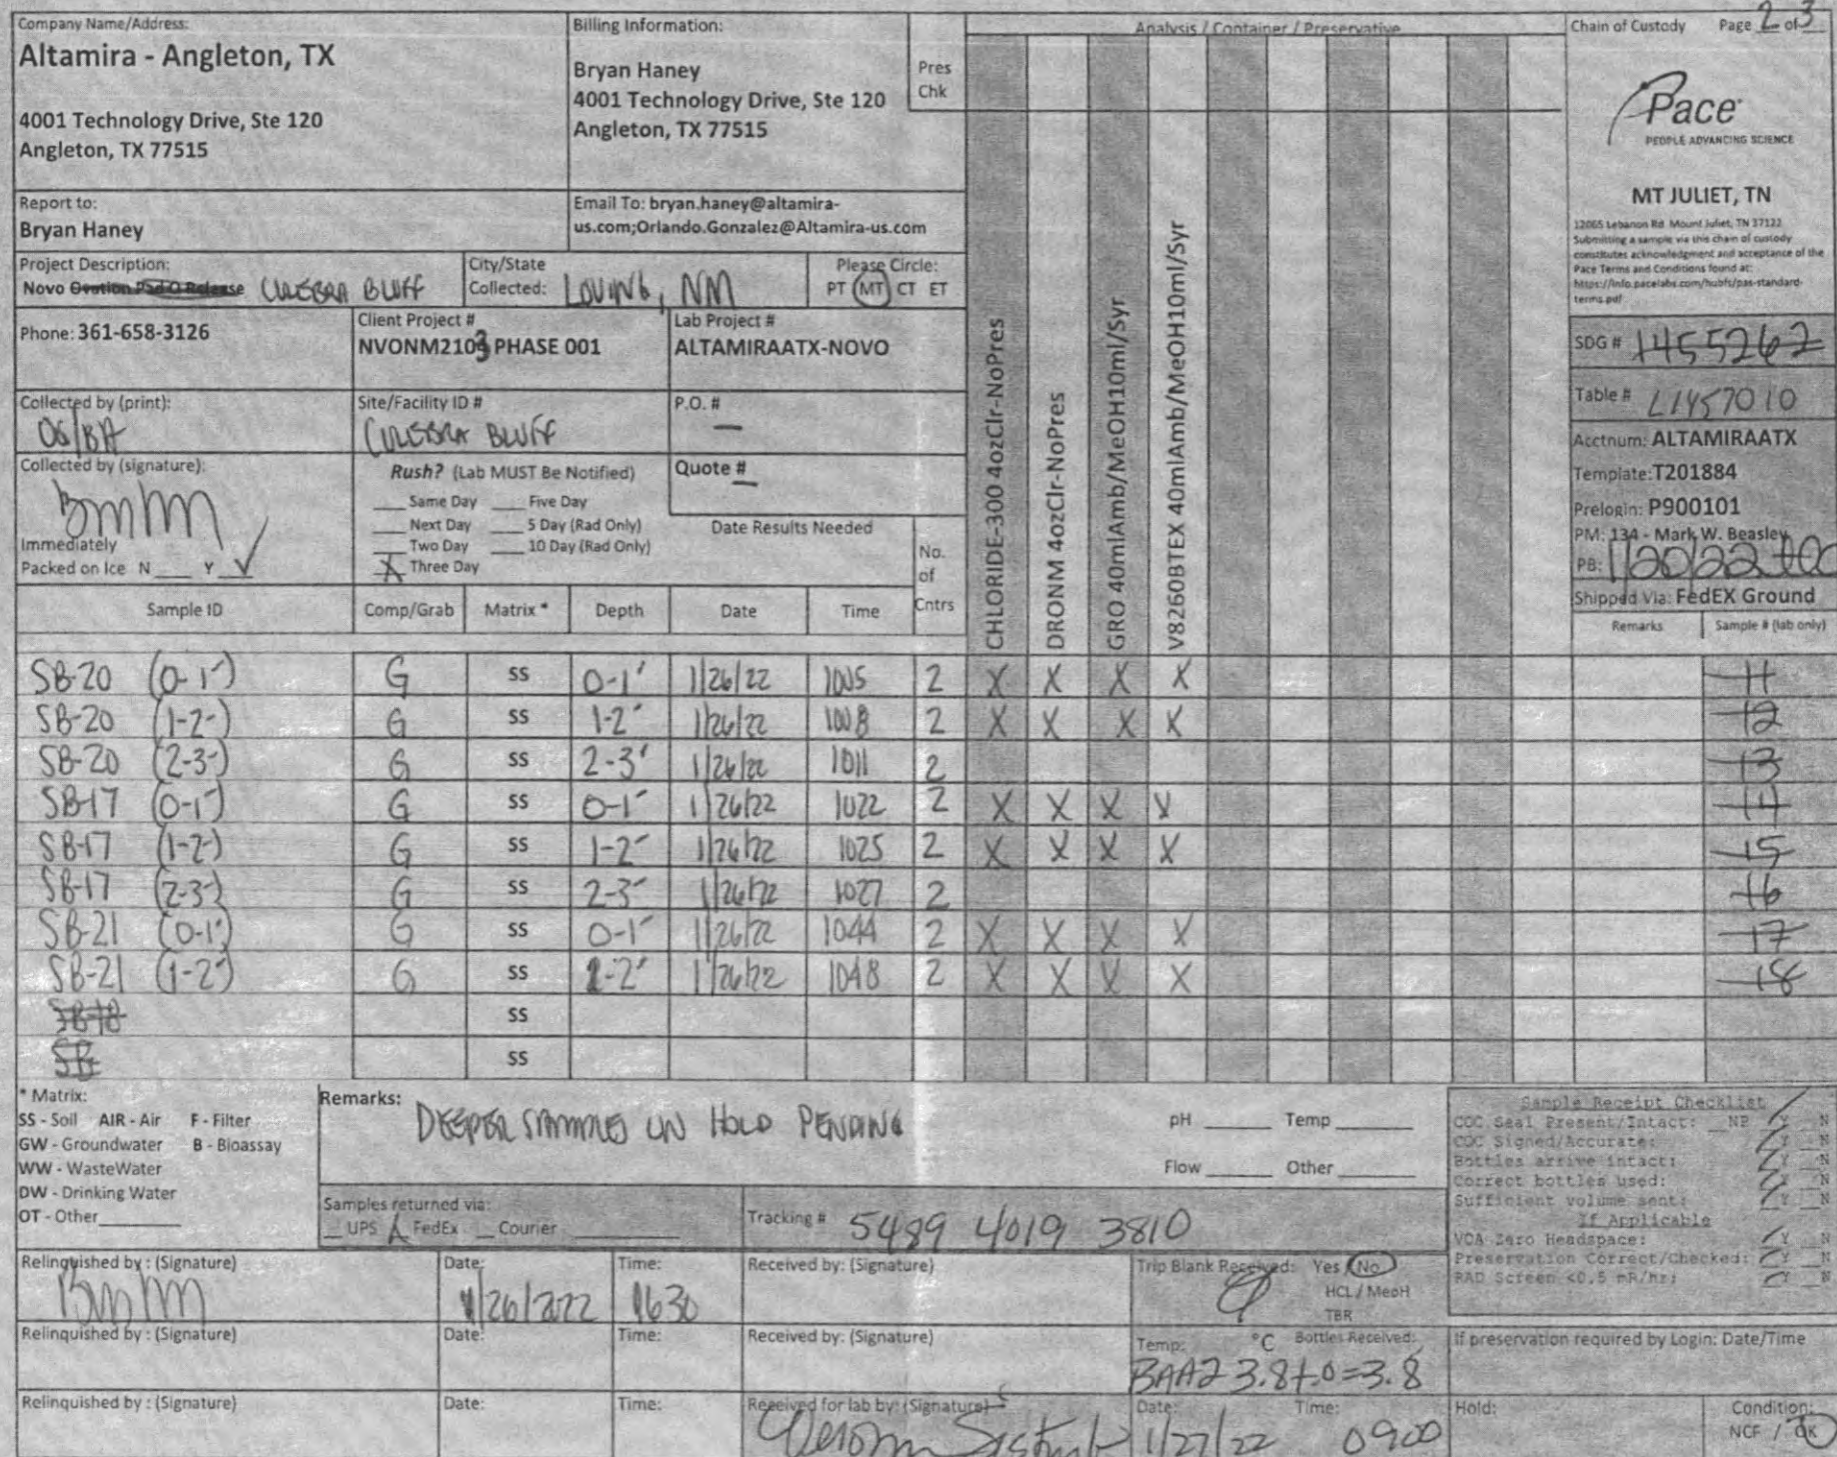 Company Name/Address:
Altamira - Angleton, TX
4001 Technology Drive, Ste 120
Angleton, TX 77515
Billing Information:
Bryan Haney
4001 Technology Drive, Ste 120
Angleton, TX 77515
Pres
Chk
Analysis / Container / Preservative
Chain of Custody Page 2 of 3
Pace
PEOPLE ADVANCING SCIENCE
MT JULIET, TN
12065 Lebanon Rd Mount Juliet, TN 37122
Submitting a sample via this chain of custody
constitutes acknowledgment and acceptance of the
Pace Terms and Conditions found at:
https://info.pacelabs.com/hubfs/pas-standard-
terms.pdf
Report to:
Bryan Haney
Email To: bryan.haney@altamira-
us.com;Orlando.Gonzalez@Altamira-us.com
Project Description:
Novo Ovation Pad O Release CULEBRA BLUFF
City/State
Collected: LOVING, NM
Please Circle:
PT MT CT ET
Phone: 361-658-3126
Client Project #
NVONM2103 PHASE 001
Lab Project #
ALTAMIRAATX-NOVO
Collected by (print):
OG/BH
Site/Facility ID #
CULEBRA BLUFF
P.O. #
—
Collected by (signature):
Immediately
Packed on Ice N ___ Y ✓
Rush? (Lab MUST Be Notified)
___ Same Day ___ Five Day
___ Next Day ___ 5 Day (Rad Only)
___ Two Day ___ 10 Day (Rad Only)
X Three Day
Quote #
—
Date Results Needed
No.
of
Cntrs
CHLORIDE-300 4ozClr-NoPres
DRONM 4ozClr-NoPres
GRO 40mlAmb/MeOH10ml/Syr
V8260BTEX 40mlAmb/MeOH10ml/Syr
SDG # 1455262
Table # L1457010
Acctnum: ALTAMIRAATX
Template:T201884
Prelogin: P900101
PM: 134 - Mark W. Beasley
PB: 1/20/22
Shipped Via: FedEX Ground
Sample ID Comp/Grab Matrix * Depth Date Time Remarks Sample # (lab only)
SB-20 (0-1') G SS 0-1' 1/26/22 1005 2 X X X X 11
SB-20 (1-2') G SS 1-2' 1/26/22 1008 2 X X X X 12
SB-20 (2-3') G SS 2-3' 1/26/22 1011 2 13
SB-17 (0-1') G SS 0-1' 1/26/22 1022 2 X X X X 14
SB-17 (1-2') G SS 1-2' 1/26/22 1025 2 X X X X 15
SB-17 (2-3') G SS 2-3' 1/26/22 1027 2 16
SB-21 (0-1') G SS 0-1' 1/26/22 1044 2 X X X X 17
SB-21 (1-2') G SS 1-2' 1/26/22 1048 2 X X X X 18
SB-18 SS
SB SS
* Matrix:
SS - Soil AIR - Air F - Filter
GW - Groundwater B - Bioassay
WW - WasteWater
DW - Drinking Water
OT - Other
Remarks:
DEEPER SAMPLES ON HOLD PENDING
pH ______ Temp ______
Flow ______ Other ______
Samples returned via:
__ UPS X FedEx __ Courier
Tracking # 5489 4019 3810
Sample Receipt Checklist
COC Seal Present/Intact: __NP Y __N
COC Signed/Accurate: Y __N
Bottles arrive intact: Y __N
Correct bottles used: Y __N
Sufficient volume sent: Y __N
If Applicable
VOA Zero Headspace: Y __N
Preservation Correct/Checked: Y __N
RAD Screen <0.5 mR/hr: Y __N
Relinquished by : (Signature)
Date:
1/26/2022
Time:
1630
Received by: (Signature)
Trip Blank Received: Yes / No
HCL / MeoH
TBR
Relinquished by : (Signature)
Date:
Time:
Received by: (Signature)
Temp: °C Bottles Received:
BAA2 3.8+.0=3.8
If preservation required by Login: Date/Time
Relinquished by : (Signature)
Date:
Time:
Received for lab by: (Signature)
Date:
1/27/22
Time:
0900
Hold:
Condition:
NCF / OK